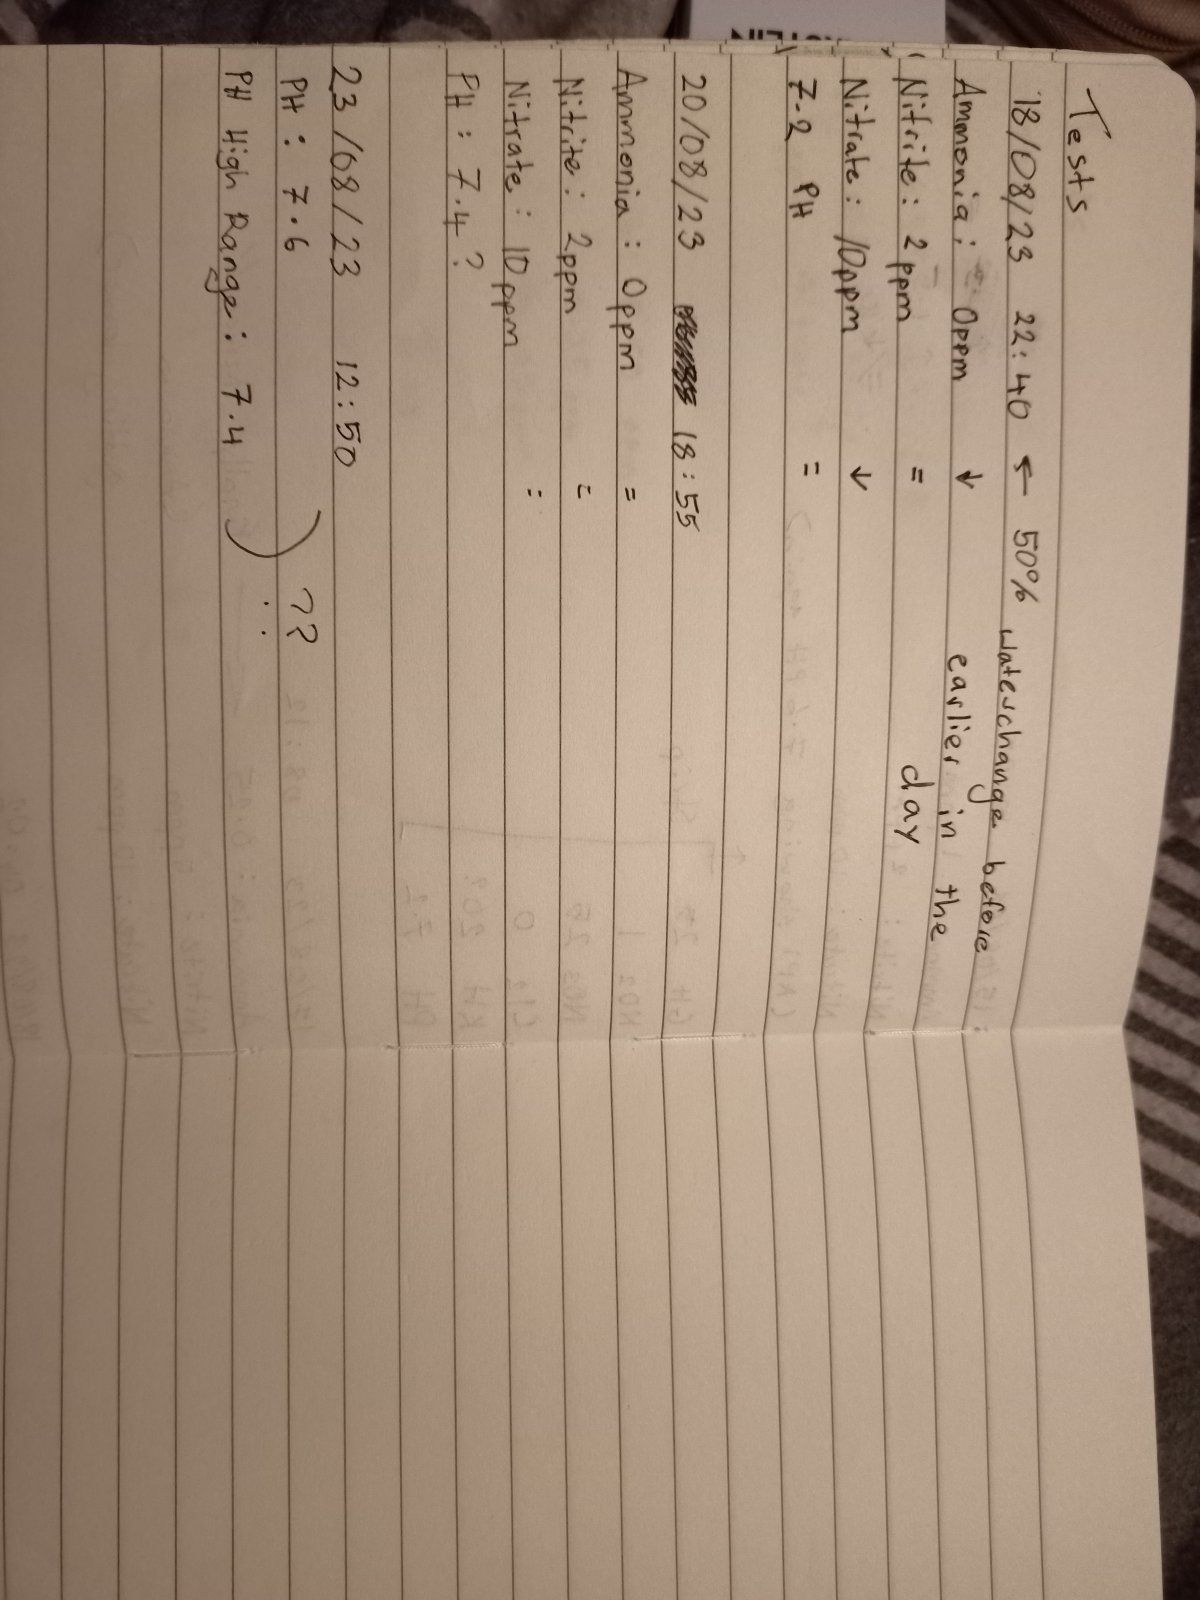 Tests
18/08/23 22:40 ← 50% waterchange before
earlier in the
day
Ammonia: 0ppm ↓
Nitrite: 2ppm =
Nitrate: 10ppm ↓
7.2 PH =
20/08/23 18:55
Ammonia: 0ppm =
Nitrite: 2ppm =
Nitrate: 10ppm =
PH: 7.4?
23/08/23 12:50
PH: 7.6
PH High Range: 7.4 ) ??